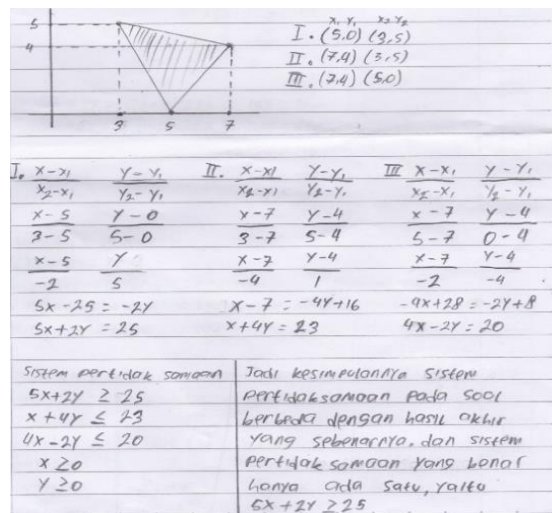 5
4
3 5 7
X₁ Y₁ X₂ Y₂
I. (5,0) (3,5)
II. (7,4) (3,5)
III. (7,4) (5,0)
I. X-X1 Y-Y1
X2-X1 Y2-Y1
X-5 Y-0
3-5 5-0
X-5 Y
-2 5
5X-25 = -2Y
5X+2Y = 25
II. X-X1 Y-Y1
X2-X1 Y2-Y1
X-7 Y-4
3-7 5-4
X-7 Y-4
-4 1
X-7 = -4Y+16
X+4Y = 23
III X-X1 Y-Y1
X2-X1 Y2-Y1
X-7 Y-4
5-7 0-4
X-7 Y-4
-2 -4
-4X+28 = -2Y+8
4X-2Y = 20
Sistem pertidak samaan
5X+2Y ≥ 25
X+4Y ≤ 23
4X-2Y ≤ 20
X ≥ 0
Y ≥ 0
Jadi kesimpulannya sistem
pertidaksamaan pada soal
berbeda dengan hasil akhir
yang sebenarnya. dan sistem
pertidak samaan yang benar
hanya ada satu, yaitu
5X+2Y ≥ 25